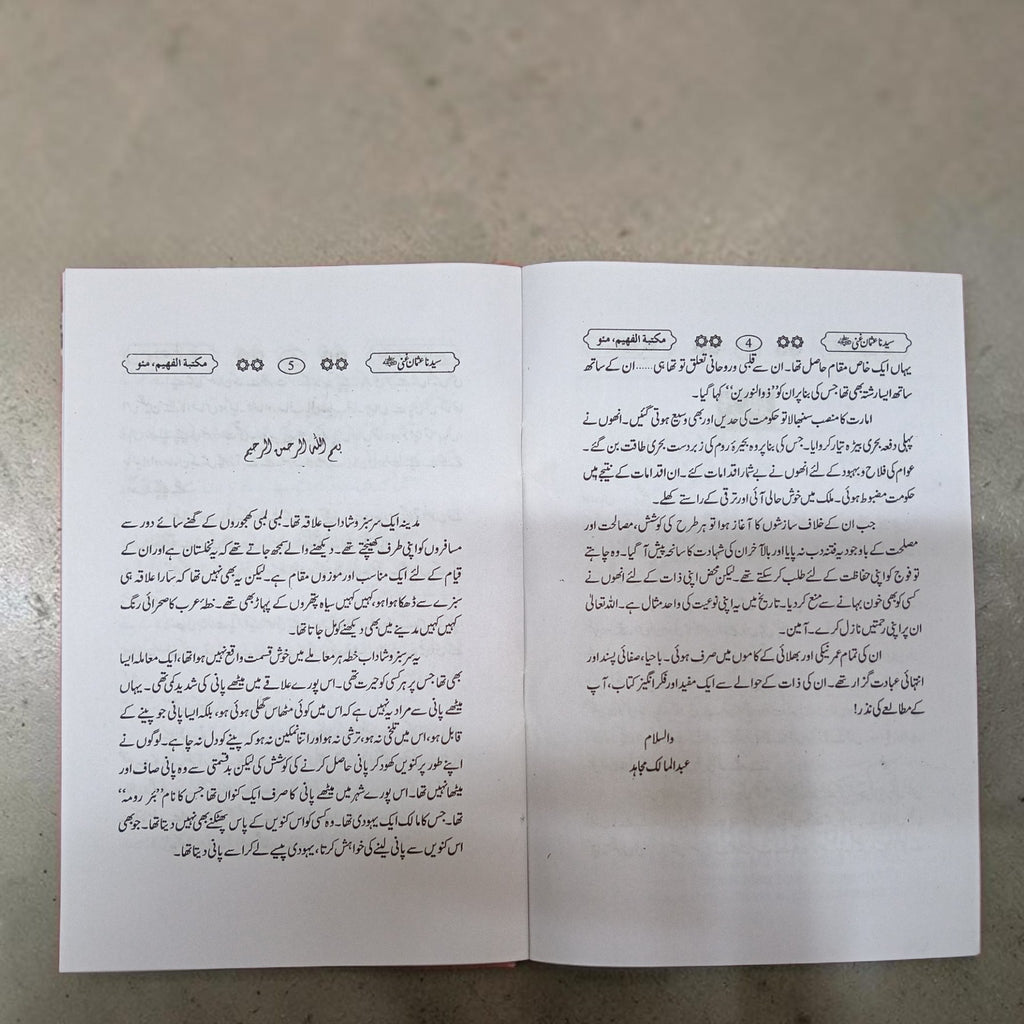 سیدنا عثمان غنی رضی اللہ عنہ 4 مکتبۃ الفہیم، مئو
یہاں ایک خاص مقام حاصل تھا۔ ان سے قلبی و روحانی تعلق تو تھا ہی...... ان کے ساتھ
ساتھ ایسا رشتہ بھی تھا جس کی بنا پر ان کو ’’ذوالنورین‘‘ کہا گیا۔
امارت کا منصب سنبھالا تو حکومت کی حدیں اور بھی وسیع ہوتی گئیں۔ انھوں نے
پہلی دفعہ بحری بیڑہ تیار کروایا۔ جس کی بنا پر وہ بحیرۂ روم کی زبردست بحری طاقت بن گئے۔
عوام کی فلاح و بہبود کے لئے انھوں نے بے شمار اقدامات کئے۔ ان اقدامات کے نتیجے میں
حکومت مضبوط ہوئی۔ ملک میں خوش حالی آئی اور ترقی کے راستے کھلے۔
جب ان کے خلاف سازشوں کا آغاز ہوا تو ہر طرح کی کوشش، مصالحت اور
مصلحت کے باوجود یہ فتنہ دب نہ پایا اور بالآخر ان کی شہادت کا سانحہ پیش آ گیا۔ وہ چاہتے
تو فوج کو اپنی حفاظت کے لئے طلب کر سکتے تھے۔ لیکن محض اپنی ذات کے لئے انھوں نے
کسی کو بھی خون بہانے سے منع کر دیا۔ تاریخ میں یہ اپنی نوعیت کی واحد مثال ہے۔ اللہ تعالیٰ
ان پر اپنی رحمتیں نازل کرے۔ آمین۔
ان کی تمام عمر نیکی اور بھلائی کے کاموں میں صرف ہوئی۔ باحیا، صفائی پسند اور
انتہائی عبادت گزار تھے۔ ان کی ذات کے حوالے سے ایک مفید اور فکر انگیز کتاب، آپ
کے مطالعے کی نذر!
والسلام
عبدالمالک مجاہد
سیدنا عثمان غنی رضی اللہ عنہ 5 مکتبۃ الفہیم، مئو
بسم اللہ الرحمن الرحیم
مدینہ ایک سرسبز و شاداب علاقہ تھا۔ لمبی لمبی کھجوروں کے گھنے سائے دور سے
مسافروں کو اپنی طرف کھینچتے تھے۔ دیکھنے والے سمجھ جاتے تھے کہ یہ نخلستان ہے اور ان کے
قیام کے لئے ایک مناسب اور موزوں مقام ہے۔ لیکن یہ بھی نہیں تھا کہ سارا علاقہ ہی
سبزے سے ڈھکا ہوا ہو، کہیں کہیں سیاہ پتھروں کے پہاڑ بھی تھے۔ خطۂ عرب کا صحرائی رنگ
کہیں کہیں مدینے میں بھی دیکھنے کو مل جاتا تھا۔
یہ سرسبز و شاداب خطہ ہر معاملے میں خوش قسمت واقع نہیں ہوا تھا، ایک معاملہ ایسا
بھی تھا جس پر ہر کسی کو حیرت تھی۔ اس پورے علاقے میں میٹھے پانی کی شدید کمی تھی۔ یہاں
میٹھے پانی سے مراد یہ نہیں ہے کہ اس میں کوئی مٹھاس گھلی ہوئی ہو، بلکہ ایسا پانی جو پینے کے
قابل ہو، اس میں تلخی نہ ہو، ترشی نہ ہو اور اتنا نمکین نہ ہو کہ پینے کو دل نہ چاہے۔ لوگوں نے
اپنے طور پر کنویں کھود کر پانی حاصل کرنے کی کوشش کی لیکن بدقسمتی سے وہ پانی صاف اور
میٹھا نہیں تھا۔ اس پورے شہر میں میٹھے پانی کا صرف ایک کنواں تھا جس کا نام ’’بئر رومہ‘‘
تھا۔ جس کا مالک ایک یہودی تھا۔ وہ کسی کو اس کنویں کے پاس پھٹکنے بھی نہیں دیتا تھا۔ جو بھی
اس کنویں سے پانی لینے کی خواہش کرتا، یہودی پیسے لے کر اسے پانی دیتا تھا۔